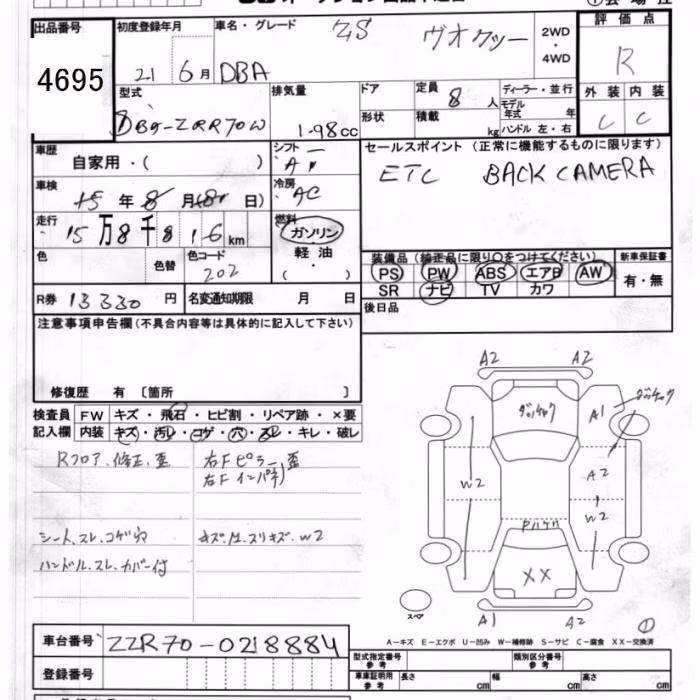 出品番号
4695
初度登録年月
21 6月
車名・グレード
ZS ヴオクシー
2WD
・
4WD
評価点
R
外装 内装
C C
DBA
型式
DBA-ZRR70W
排気量
1.98cc
ドア
形状
定員
8人
積載
kg
ディーラー・並行
モデル
年式 年
ハンドル 左・右
車歴
自家用・( )
シフト
A
セールスポイント (正常に機能するものに限ります)
ETC BACK CAMERA
車検
15年8月(8日)
冷房
AC
走行
15万8千816km
燃料
ガソリン
軽油
・( )
色
色替
色コード
202
装備品 (純正品に限り○をつけてください)
PS PW ABS エアB AW
SR ナビ TV カワ
新車保証書
有・無
R券 13330円
名変通知期限 月 日
後日品
注意事項申告欄(不具合内容等は具体的に記入して下さい)
修復歴 有 〔箇所 〕
検査員
記入欄
FW キズ・飛石・ヒビ割・リペア跡・×要
内装 キズ・汚レ・コゲ・穴・スレ・キレ・破レ
Rフロア、修正、歪
右Fピラー歪
右Fインパネ
シート、スレ、コゲ穴
ハンドル、スレ、カバー付
A2 A2
A1
W2
A2
W2
XX
スペア
A1 A2
①
A-キズ E-エクボ U-凹み W-補修跡 S-サビ C-腐食 XX-交換済
車台番号 ZZR70-0218884
登録番号
型式指定番号
参考
類別区分番号
参考
車庫証明用
参考
長さ cm
幅 cm
高さ cm